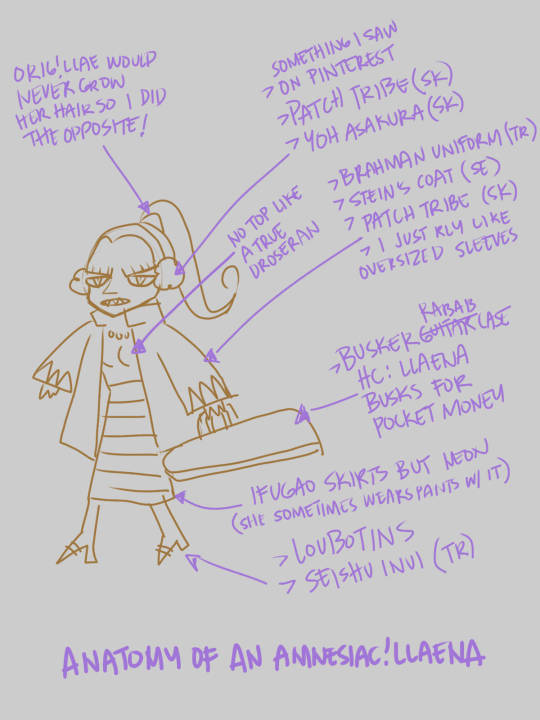 ORIG!LLAE WOULD
NEVER GROW
HER HAIR SO I DID
THE OPPOSITE!
SOMETHING I SAW
> ON PINTEREST
> PATCH TRIBE (SK)
> YOH ASAKURA (SK)
NO TOP LIKE
A TRUE
DROSERAN
> BRAHMAN UNIFORM (TR)
> STEIN'S COAT (SE)
> PATCH TRIBE (SK)
> I JUST RLY LIKE
OVERSIZED SLEEVES
RABAB
> BUSKER GUITAR CASE
HC: LLAENA
BUSKS FOR
POCKET MONEY
IFUGAO SKIRTS BUT NEON
(SHE SOMETIMES WEARS PANTS W/ IT)
> LOUBOTINS
> SEISHU INUI (TR)
ANATOMY OF AN AMNESIAC!LLAENA